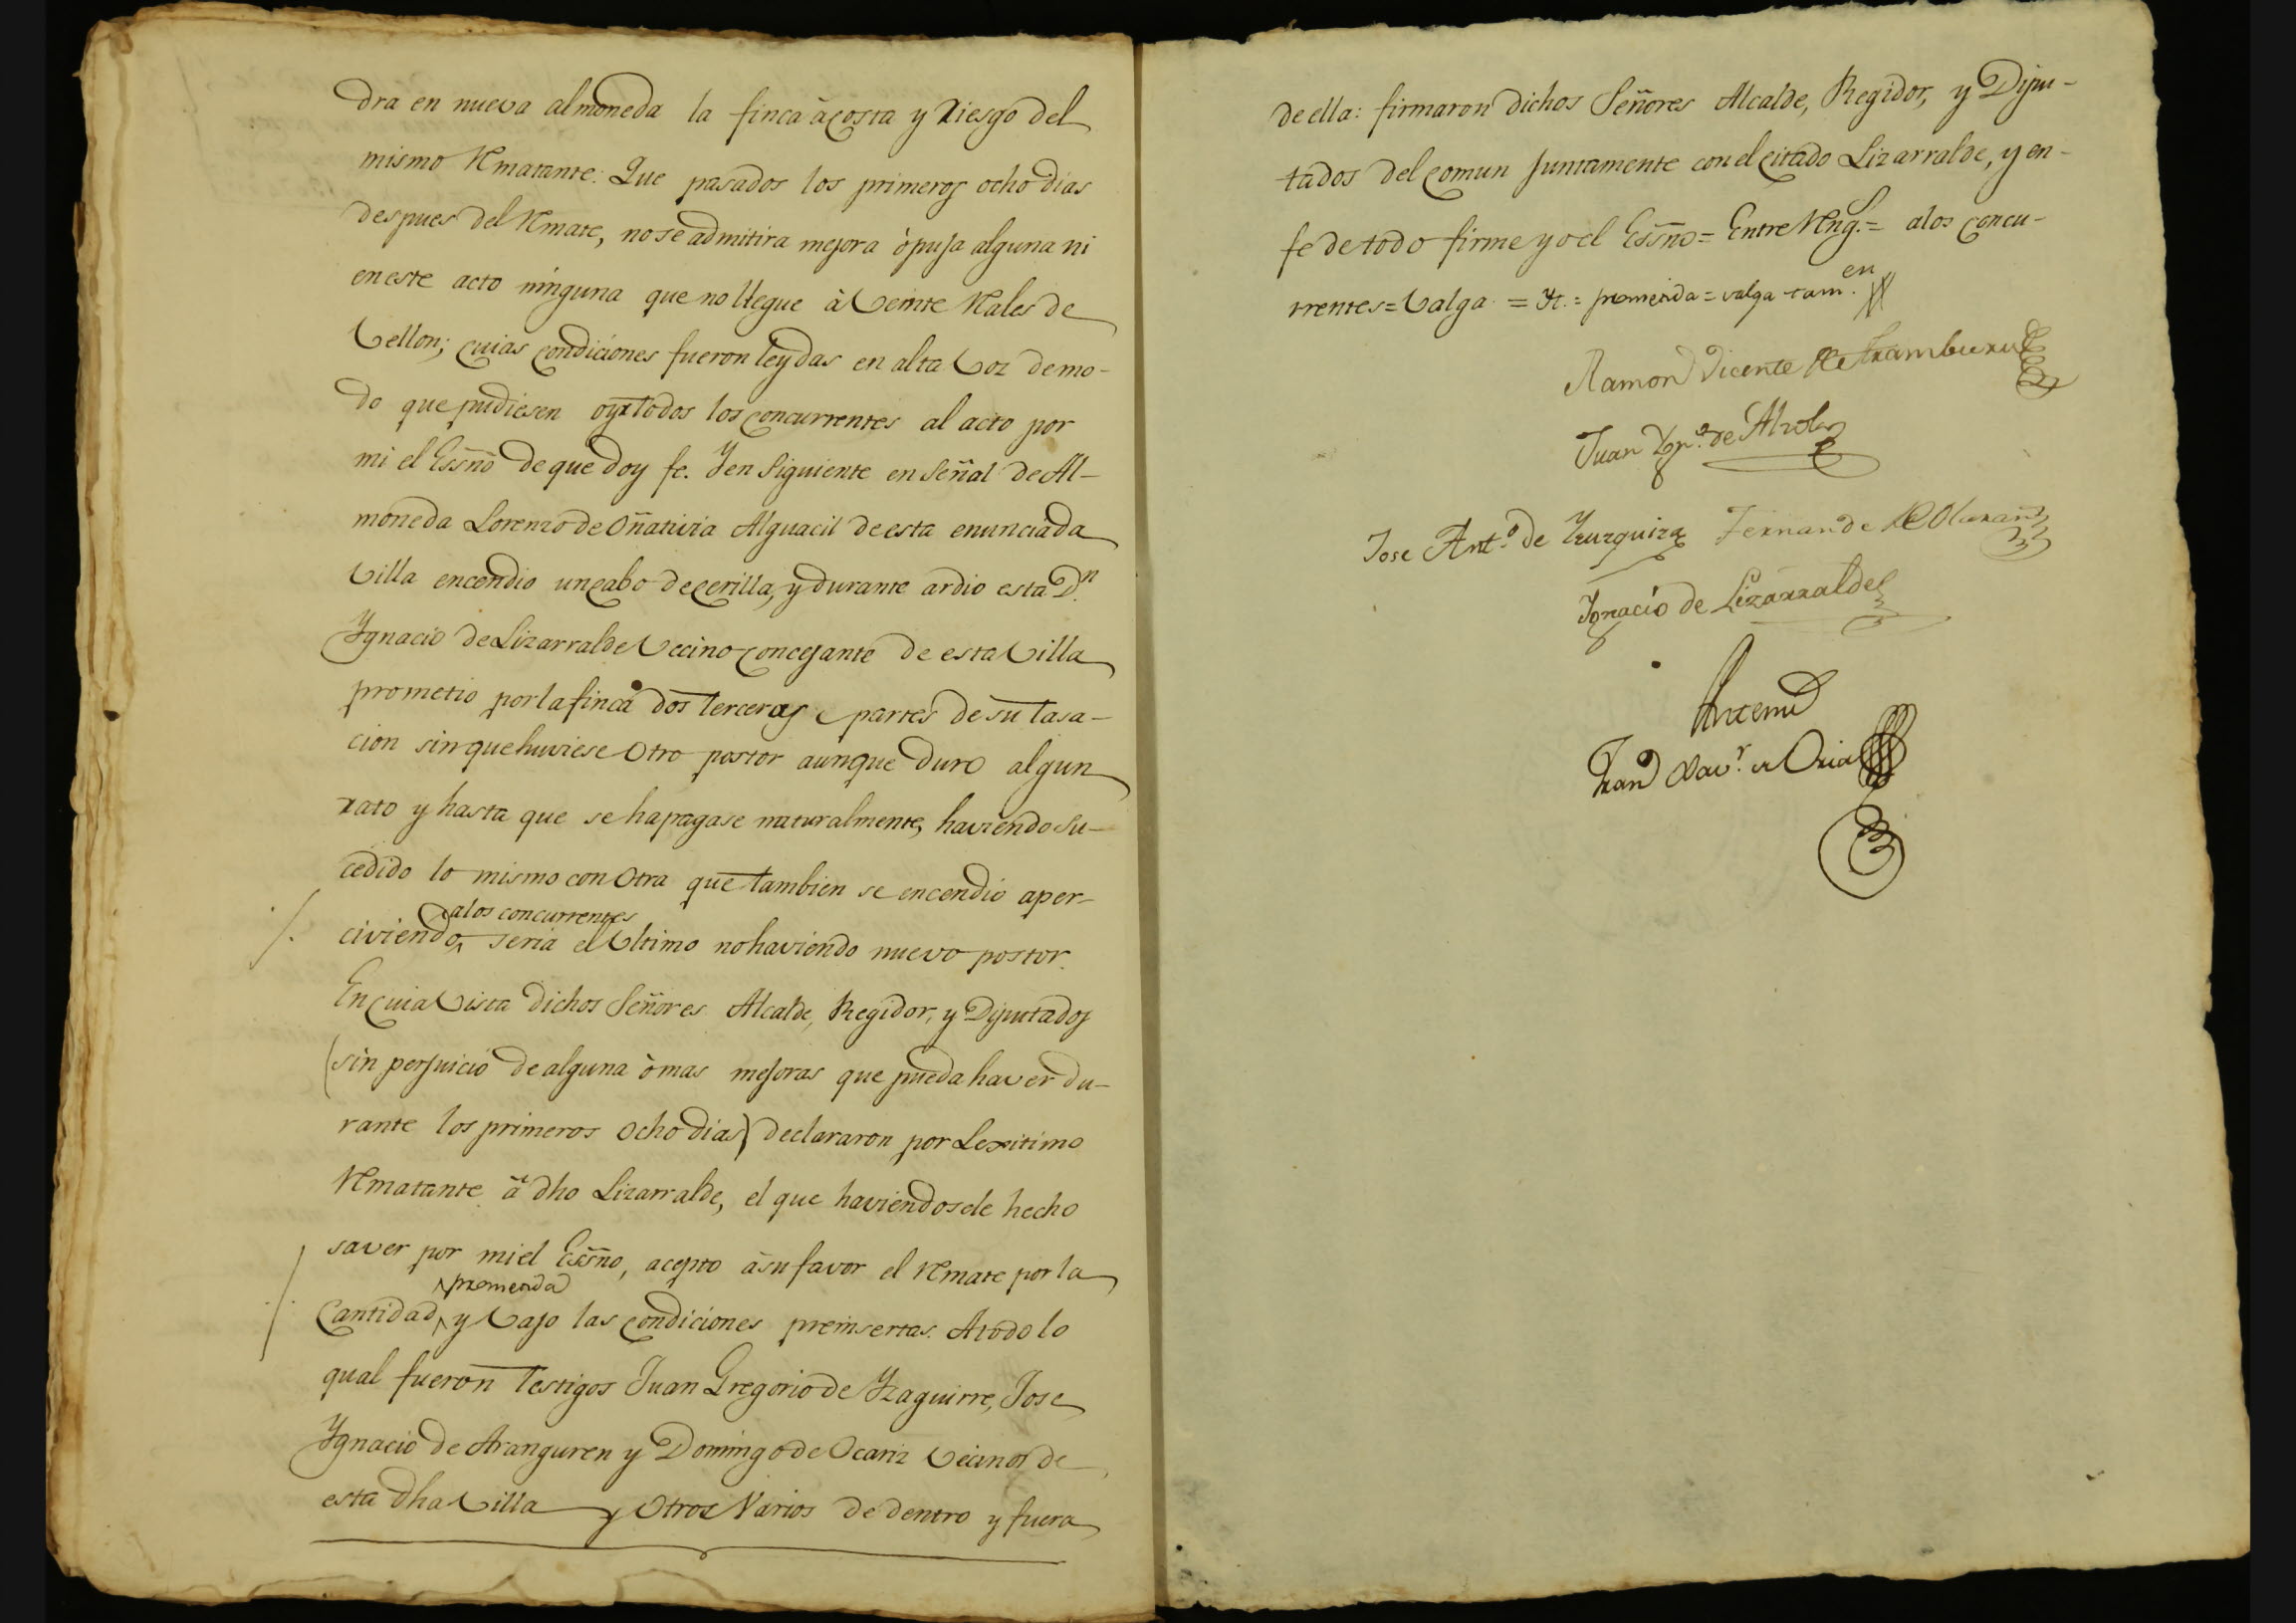 dra en nueva almoneda la finca à costa y riesgo del
mismo Rmatante: Que pasados los primeros ocho dias
despues del Rmate, no se admitira mejora ò puja alguna ni
en este acto ninguna que no llegue à Veinte Rales de
Vellon; cuias condiciones fueron leydas en alta Voz de mo-
do que pudiesen oyr todos los concurrentes al acto por
mi el Essño de que doy fe. Y en siguiente en señal de Al-
moneda Lorenzo de Oñativia Alguacil de esta enunciada
Villa encendio un cabo de cerilla, y durante ardio esta Dn.
Ygnacio de Lizarralde Vecino concejante de esta Villa
prometio por la finca dos terceras partes de su tasa-
cion sin que huviese otro postor aunque duro algun
rato y hasta que se hapagase naturalmente, haviendo su-
cedido lo mismo con otra que tambien se encendio aper-
a los concurrentes
civiendo, seria el Ultimo no haviendo nuevo postor.
En cuia Vista dichos Señores Alcalde, Regidor, y Diputados
(sin perjuicio de alguna ò mas mejoras que pueda haver du-
rante los primeros ocho dias) declararon por Lexitimo
Rmatante à dho Lizarralde, el que haviendosele hecho
saver por mi el Essño, acepto à su favor el Rmate por la
prometida
Cantidad, y Vajo las condiciones preinsertas. A todo lo
qual fueron testigos Juan Gregorio de Yzaguirre, Jose
Ygnacio de Aranguren y Domingo de Ocariz Vecinos de
esta dha Villa y Otros Varios de dentro y fuera
de ella: firmaron dichos Señores Alcalde, Regidor, y Dipu-
tados del comun juntamente con el citado Lizarralde, y en-
fe de todo firme yo el Essño = Entre Rng.s = a los concu-
rrentes = Valga = Yt. = prometida = valga tamen.
Ramon Vicente de
Juan de Alzola
Jose Anto. de Yzurquiza Fernando de
Ygnacio de Lizarralde
Antemi
Franco Xavr. de Oria